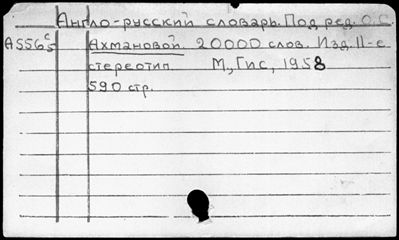 Англо-русский словарь. Под ред. О.С.
А556с5 Ахмановой. 20000 слов. Изд. 11-е
стереотип. М., Гис, 1958
590 стр.